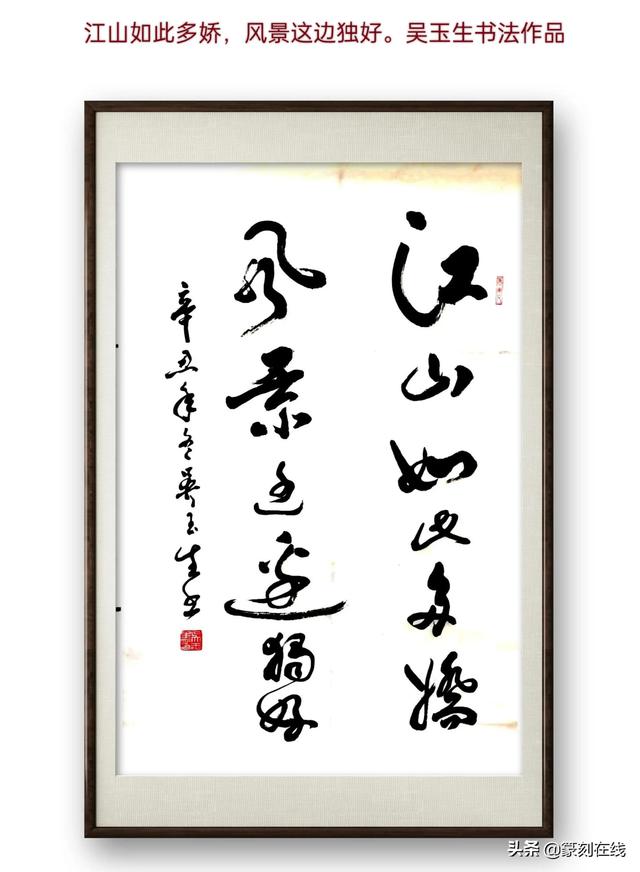 江山如此多娇，风景这边独好。吴玉生书法作品
江山如此多嬌
风景这邊獨好
辛丑年冬吴玉生书
头条 @篆刻在线